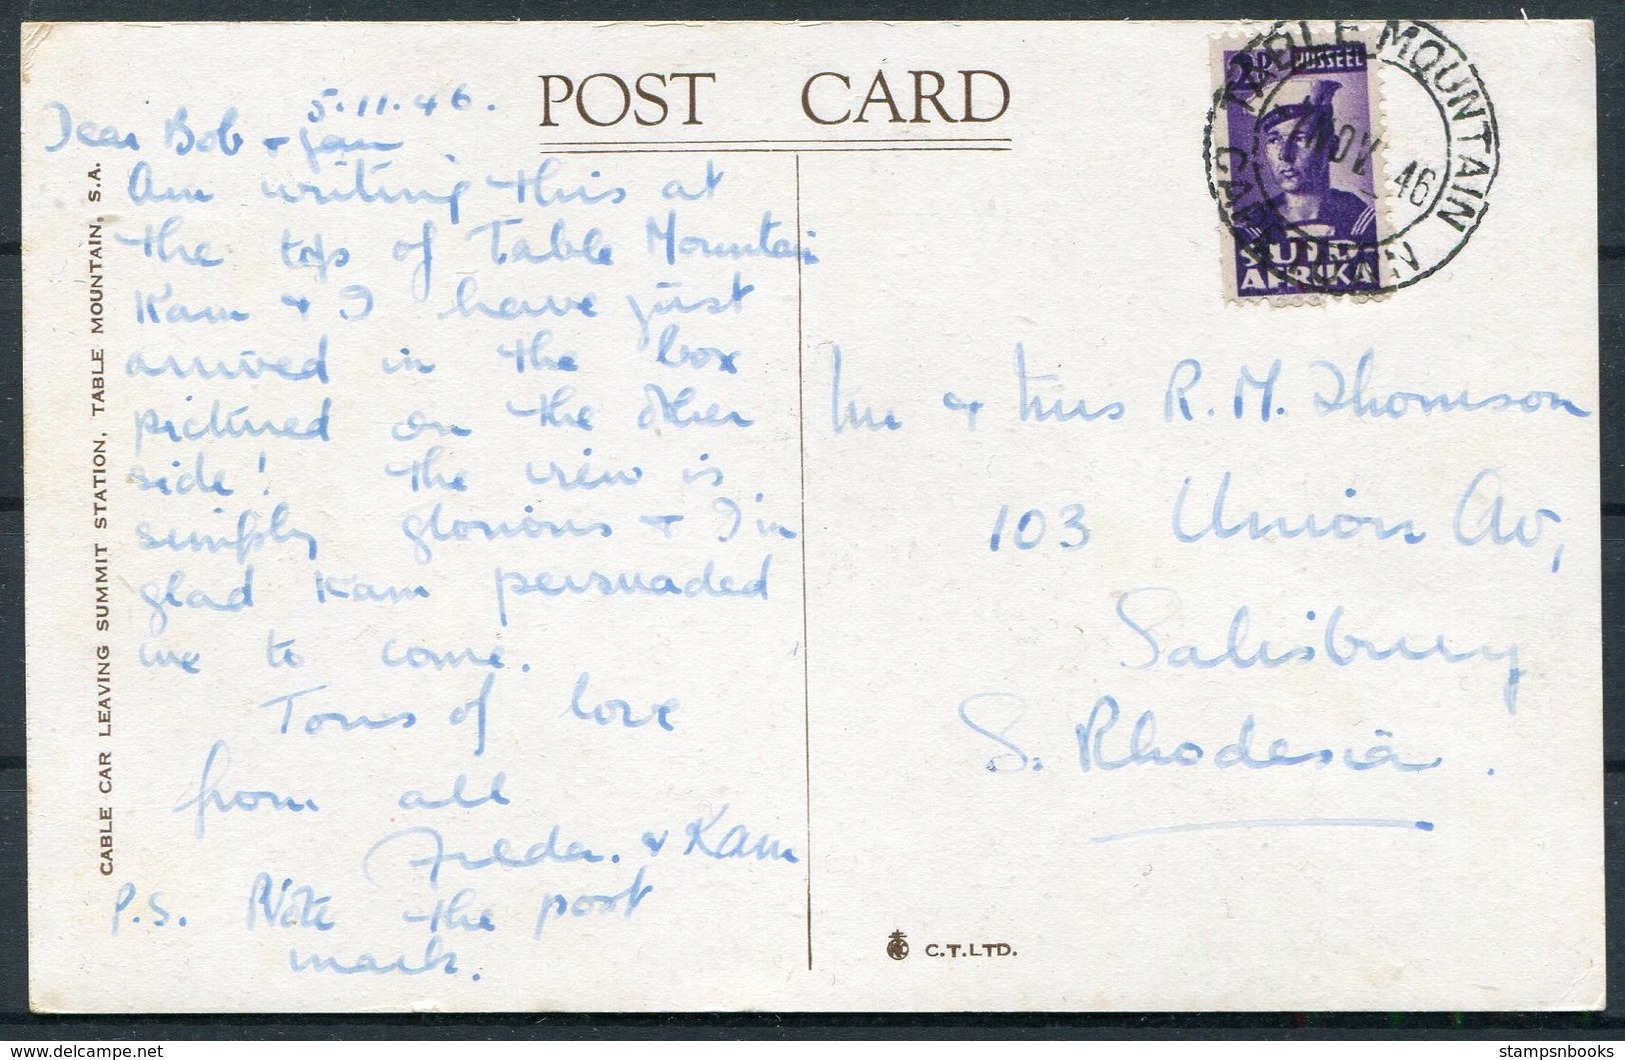 POST CARD
5.11.46.
Dear Bob + Jan
Am writing this at
the top of Table Mountain
Kam + I have just
arrived in the box
pictured on the other
side! The view is
simply glorious + I'm
glad Kam persuaded
me to come.
Tons of love
from all
Freda. & Kam
P.S. Note the post
mark.
CABLE CAR LEAVING SUMMIT STATION, TABLE MOUNTAIN, S.A.
TABLE MOUNTAIN
7 NOV 46
POSSEEL
SUID-
AFRIKA
Mr + Mrs R. M. Thomson
103 Union Av,
Salisbury
S. Rhodesia.
C.T.LTD.
stampsnbooks
delcampe.net